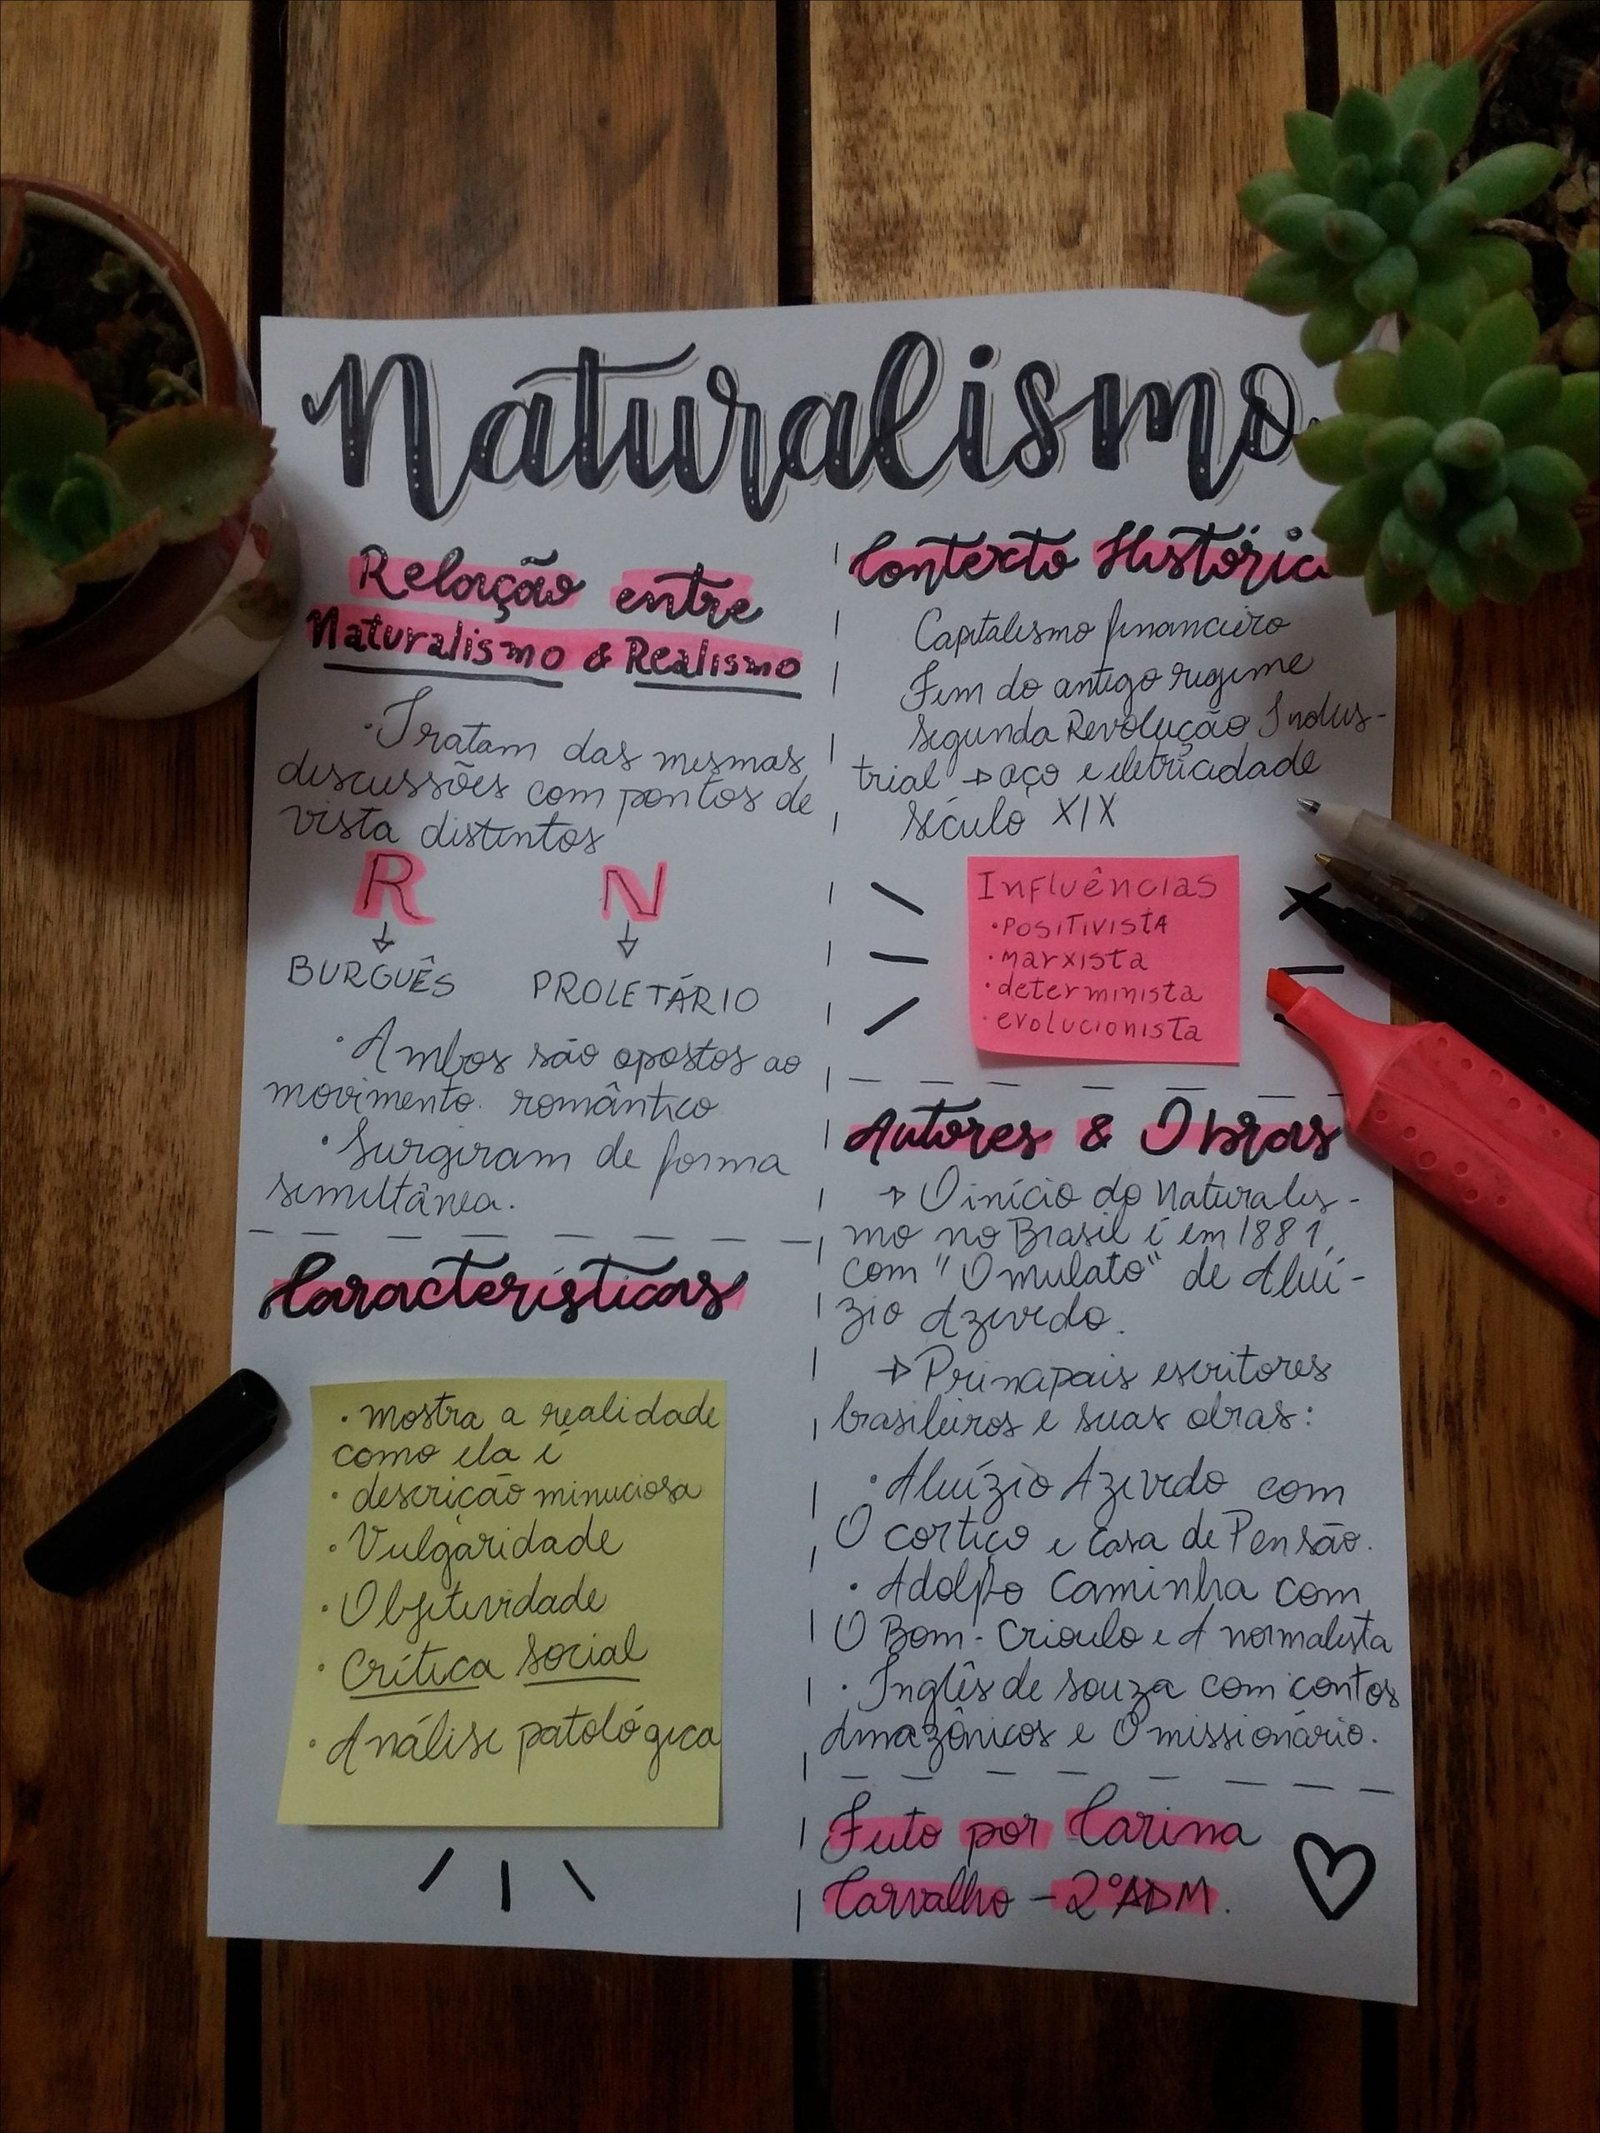 Naturalismo
Relação entre
Naturalismo & Realismo
· Tratam das mesmas
discussões com pontos de
vista distintos
R N
BURGUÊS PROLETÁRIO
· Ambos são opostos ao
movimento romântico
· Surgiram de forma
simultânea.
Características
· mostra a realidade
como ela é
· descrição minuciosa
· Vulgaridade
· Objetividade
· Crítica social
· Análise patológica
Contexto Históric
Capitalismo financeiro
Fim do antigo regime
Segunda Revolução Indus-
trial → aço e eletricidade
Século XIX
Influências
· Positivista
· marxista
· determinista
· evolucionista
Autores & Obras
→ O início do Naturalis-
mo no Brasil é em 1881,
com "O mulato" de Aluí-
zio Azevedo.
→ Principais escritores
brasileiros e suas obras:
· Aluízio Azevedo com
O cortiço e Casa de Pensão.
· Adolfo Caminha com
O Bom-Crioulo e A normalista
· Inglês de Souza com contos
Amazônicos e O missionário.
Feito por Carina
Carvalho - 2° ADM.